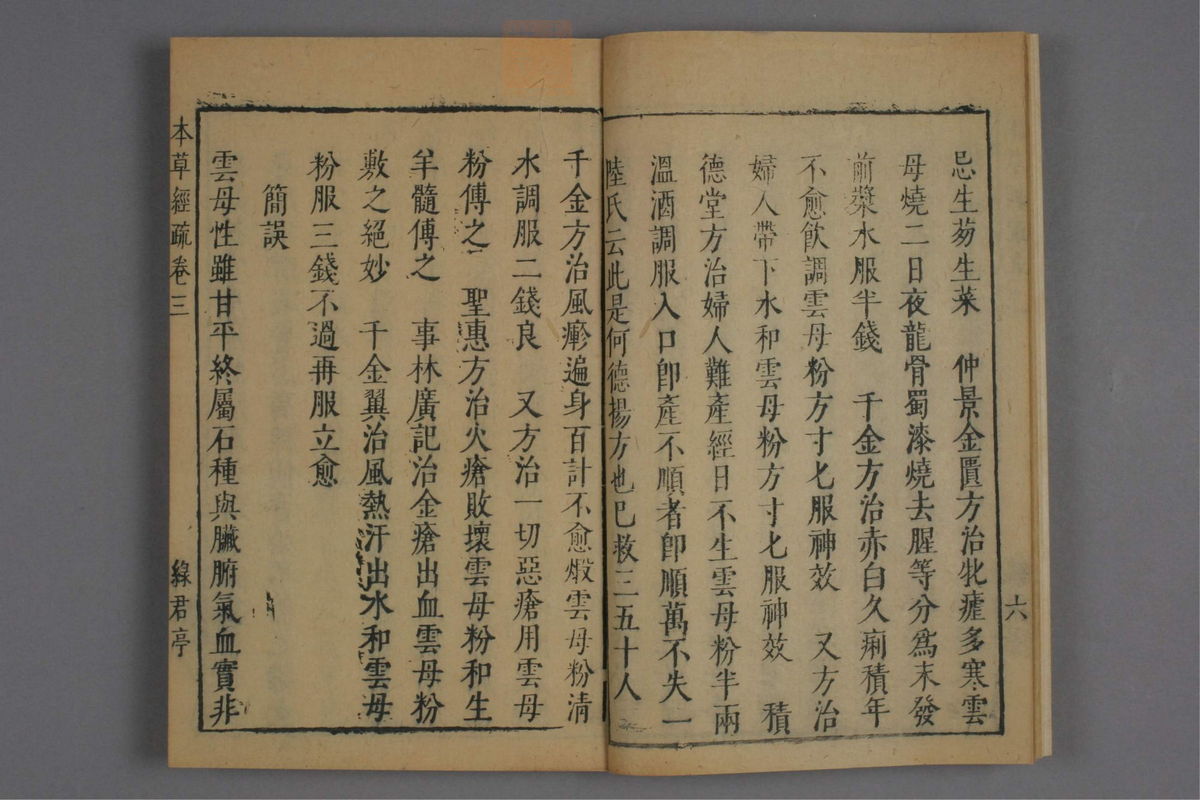 忌生芴生菜　仲景金匱方治牝瘧多寒雲
母燒二日夜龍骨蜀漆燒去腥等分爲末發
前漿水服半錢　千金方治赤白久痢積年
不愈飲調雲母粉方寸匕服神效　又方治
婦人帶下水和雲母粉方寸匕服神效　積
德堂方治婦人難產經日不生雲母粉半兩
溫酒調服入口卽產不順者卽順萬不失一
陸氏云此是何德揚方也巳救三五十人
六
千金方治風㾙遍身百計不愈煆雲母粉清
水調服二錢良　又方治一切惡瘡用雲母
粉傅之　聖惠方治火瘡敗壞雲母粉和生
羊髓傅之　事林廣記治金瘡出血雲母粉
敷之絕妙　千金翼治風熱汗出水和雲母
粉服三錢不過再服立愈
簡誤
雲母性雖甘平終屬石種與臟腑氣血實非
本草經疏卷三　綠君亭